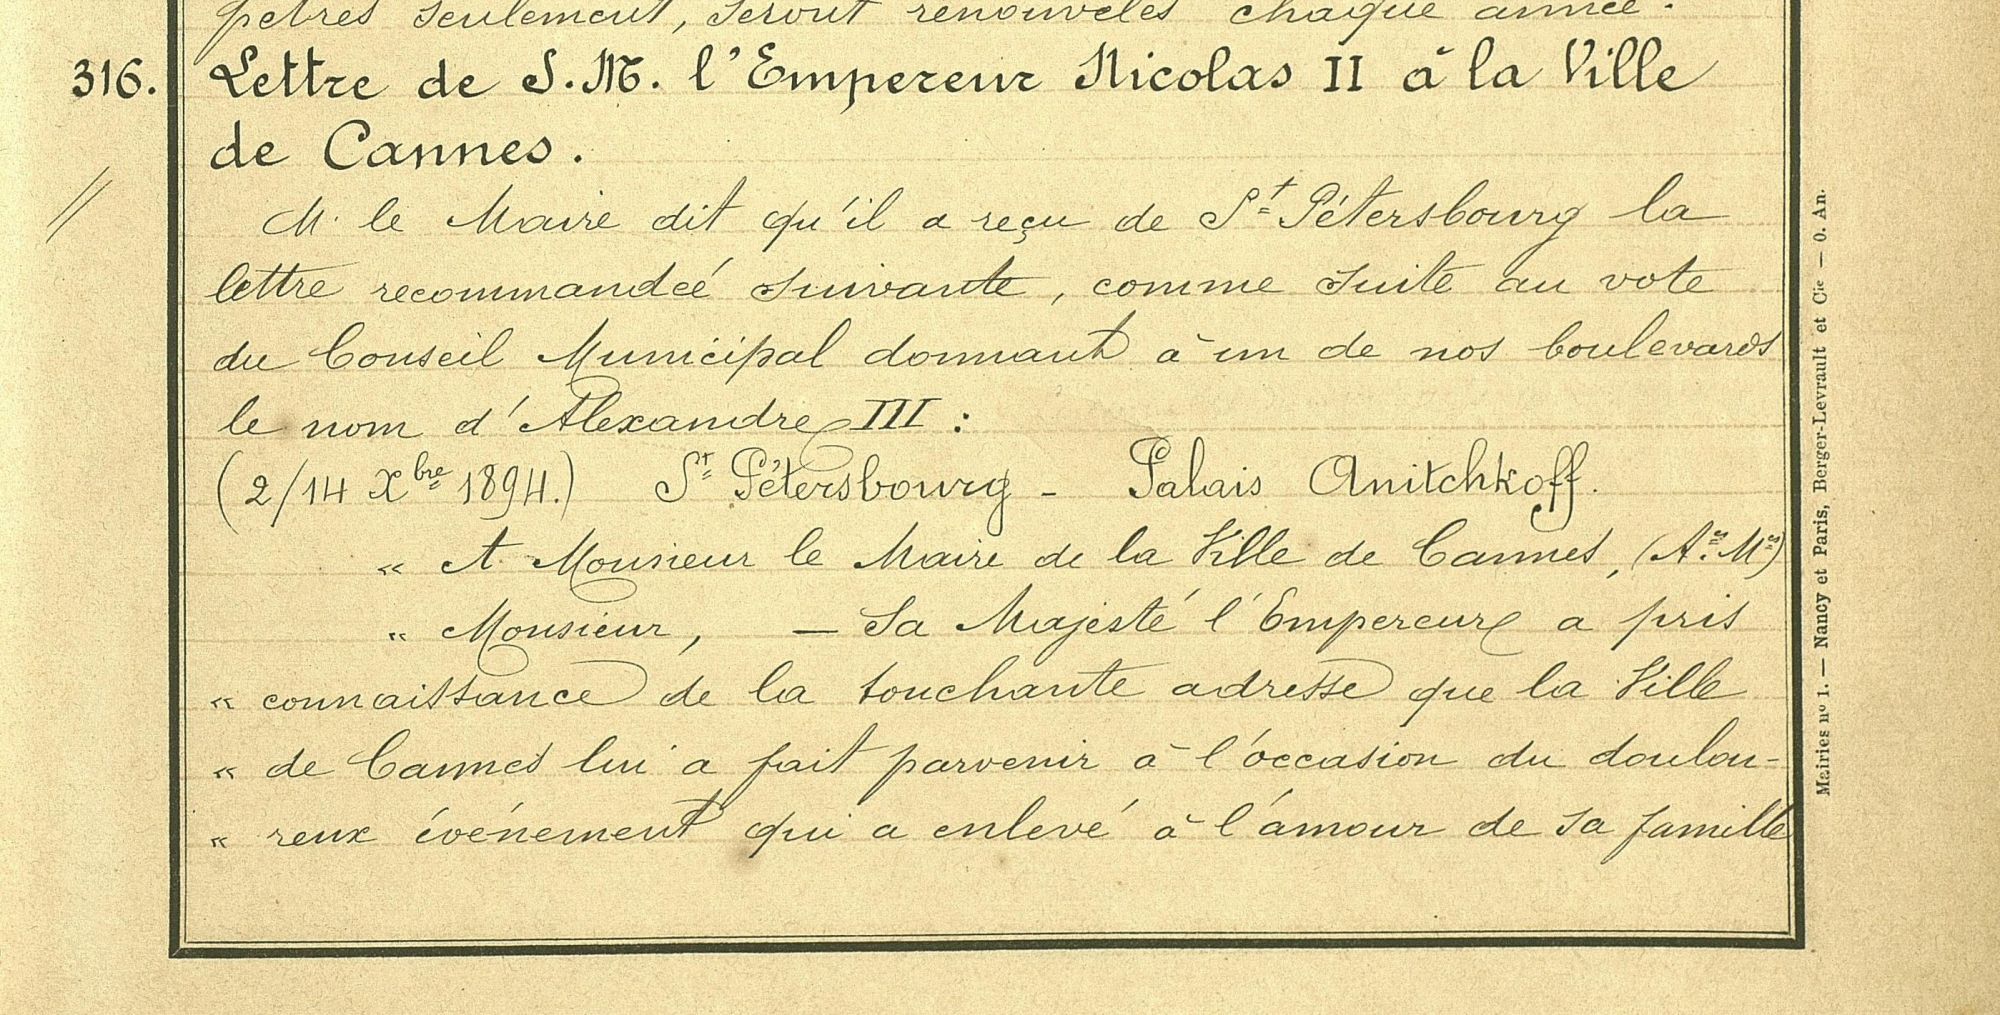 petres seulement, seront renouvelés chaque année.
316. Lettre de S.M. l'Empereur Nicolas II à la Ville
de Cannes.
M. le Maire dit qu'il a reçu de St Pétersbourg la
lettre recommandée suivante, comme suite au vote
du Conseil Municipal donnant à un de nos boulevards
le nom d'Alexandre III :
(2/14 Xbre 1894.) St Pétersbourg - Palais Anitchkoff.
" A Monsieur le Maire de la Ville de Cannes, (A.es M.es)
" Monsieur, — Sa Majesté l'Empereur a pris
" connaissance de la touchante adresse que la Ville
" de Cannes lui a fait parvenir à l'occasion du doulou-
" reux événement qui a enlevé à l'amour de sa famille
Mairies no 1. — Nancy et Paris, Berger-Levrault et Cie — O. An.